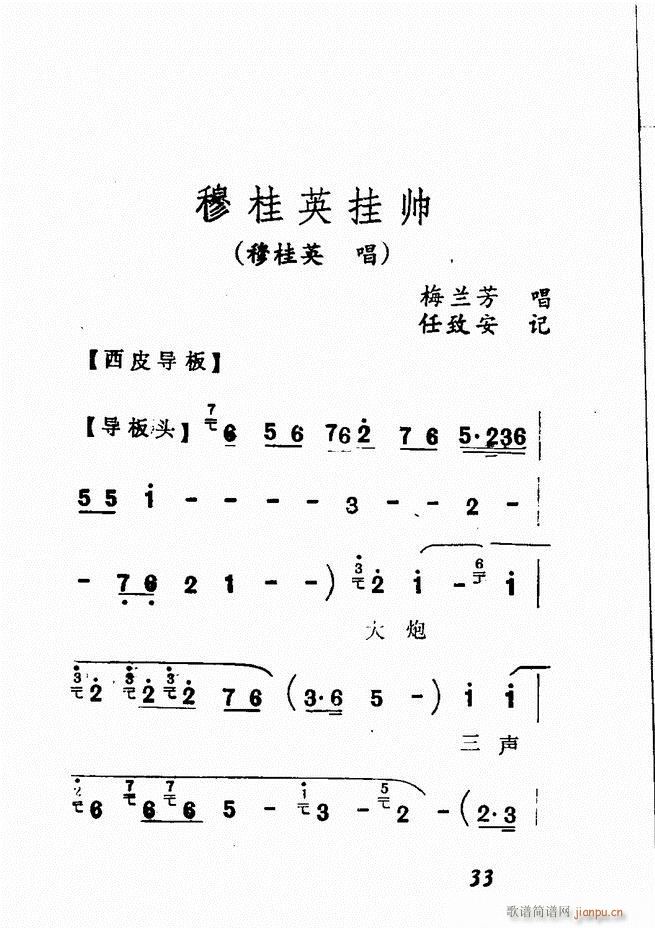 穆桂英挂帅
(穆桂英 唱)
梅兰芳 唱
任致安 记
【西皮导板】
【导板头】 7 6 5 6 7 6 2 7 6 5·236
5 5 i - - - - 3 - - 2 -
- 7 6 2 1 - - ) 3 2 i - 6 i
大 炮
3 2 3 2 3 2 7 6 (3·6 5 -) i i
三 声
2 6 7 6 7 6 5 - 1 3 - 5 2 - (2·3
33
歌谱简谱网
jianpu.cn